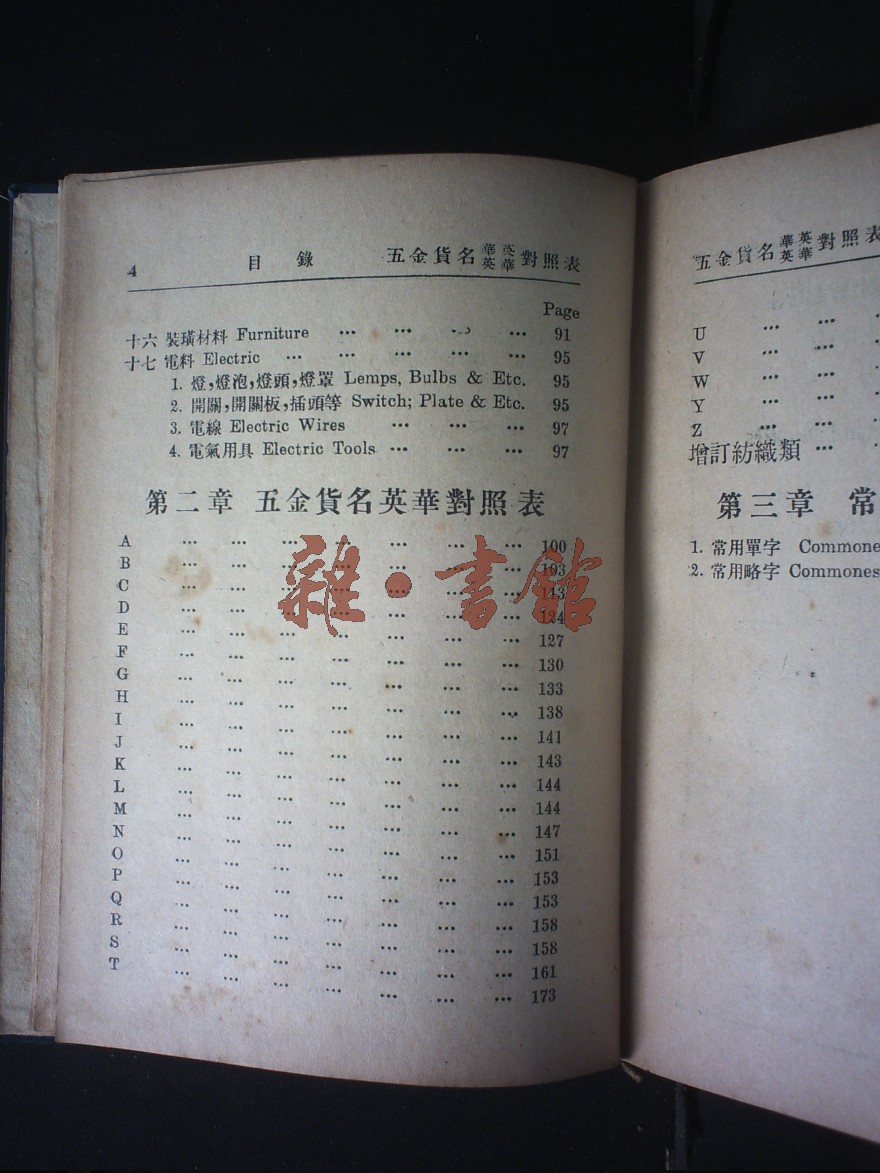 4 目錄 五金貨名華英英華對照表
Page
十六 裝璜材料 Furniture ... ... ... ... 91
十七 電料 Electric ... ... ... ... ... 95
1. 燈,燈泡,燈頭,燈罩 Lemps, Bulbs & Etc. 95
2. 開關,開關板,插頭等 Switch; Plate & Etc. 95
3. 電線 Electric Wires ... ... ... 97
4. 電氣用具 Electric Tools ... ... ... 97
第二章 五金貨名英華對照表
A ... ... ... ... ... ... ... 100
B ... ... ... ... ... ... ... 103
C ... ... ... ... ... ... ... 113
D ... ... ... ... ... ... ... 124
E ... ... ... ... ... ... ... 127
F ... ... ... ... ... ... ... 130
G ... ... ... ... ... ... ... 133
H ... ... ... ... ... ... ... 138
I ... ... ... ... ... ... ... 141
J ... ... ... ... ... ... ... 143
K ... ... ... ... ... ... ... 144
L ... ... ... ... ... ... ... 144
M ... ... ... ... ... ... ... 147
N ... ... ... ... ... ... ... 151
O ... ... ... ... ... ... ... 153
P ... ... ... ... ... ... ... 153
Q ... ... ... ... ... ... ... 158
R ... ... ... ... ... ... ... 158
S ... ... ... ... ... ... ... 161
T ... ... ... ... ... ... ... 173
雜·書館
五金貨名華英英華對照表
U ... ...
V ... ...
W ... ...
Y ... ...
Z ... ...
增訂紡織類 ...
第三章 常
1. 常用單字 Commone
2. 常用略字 Commones